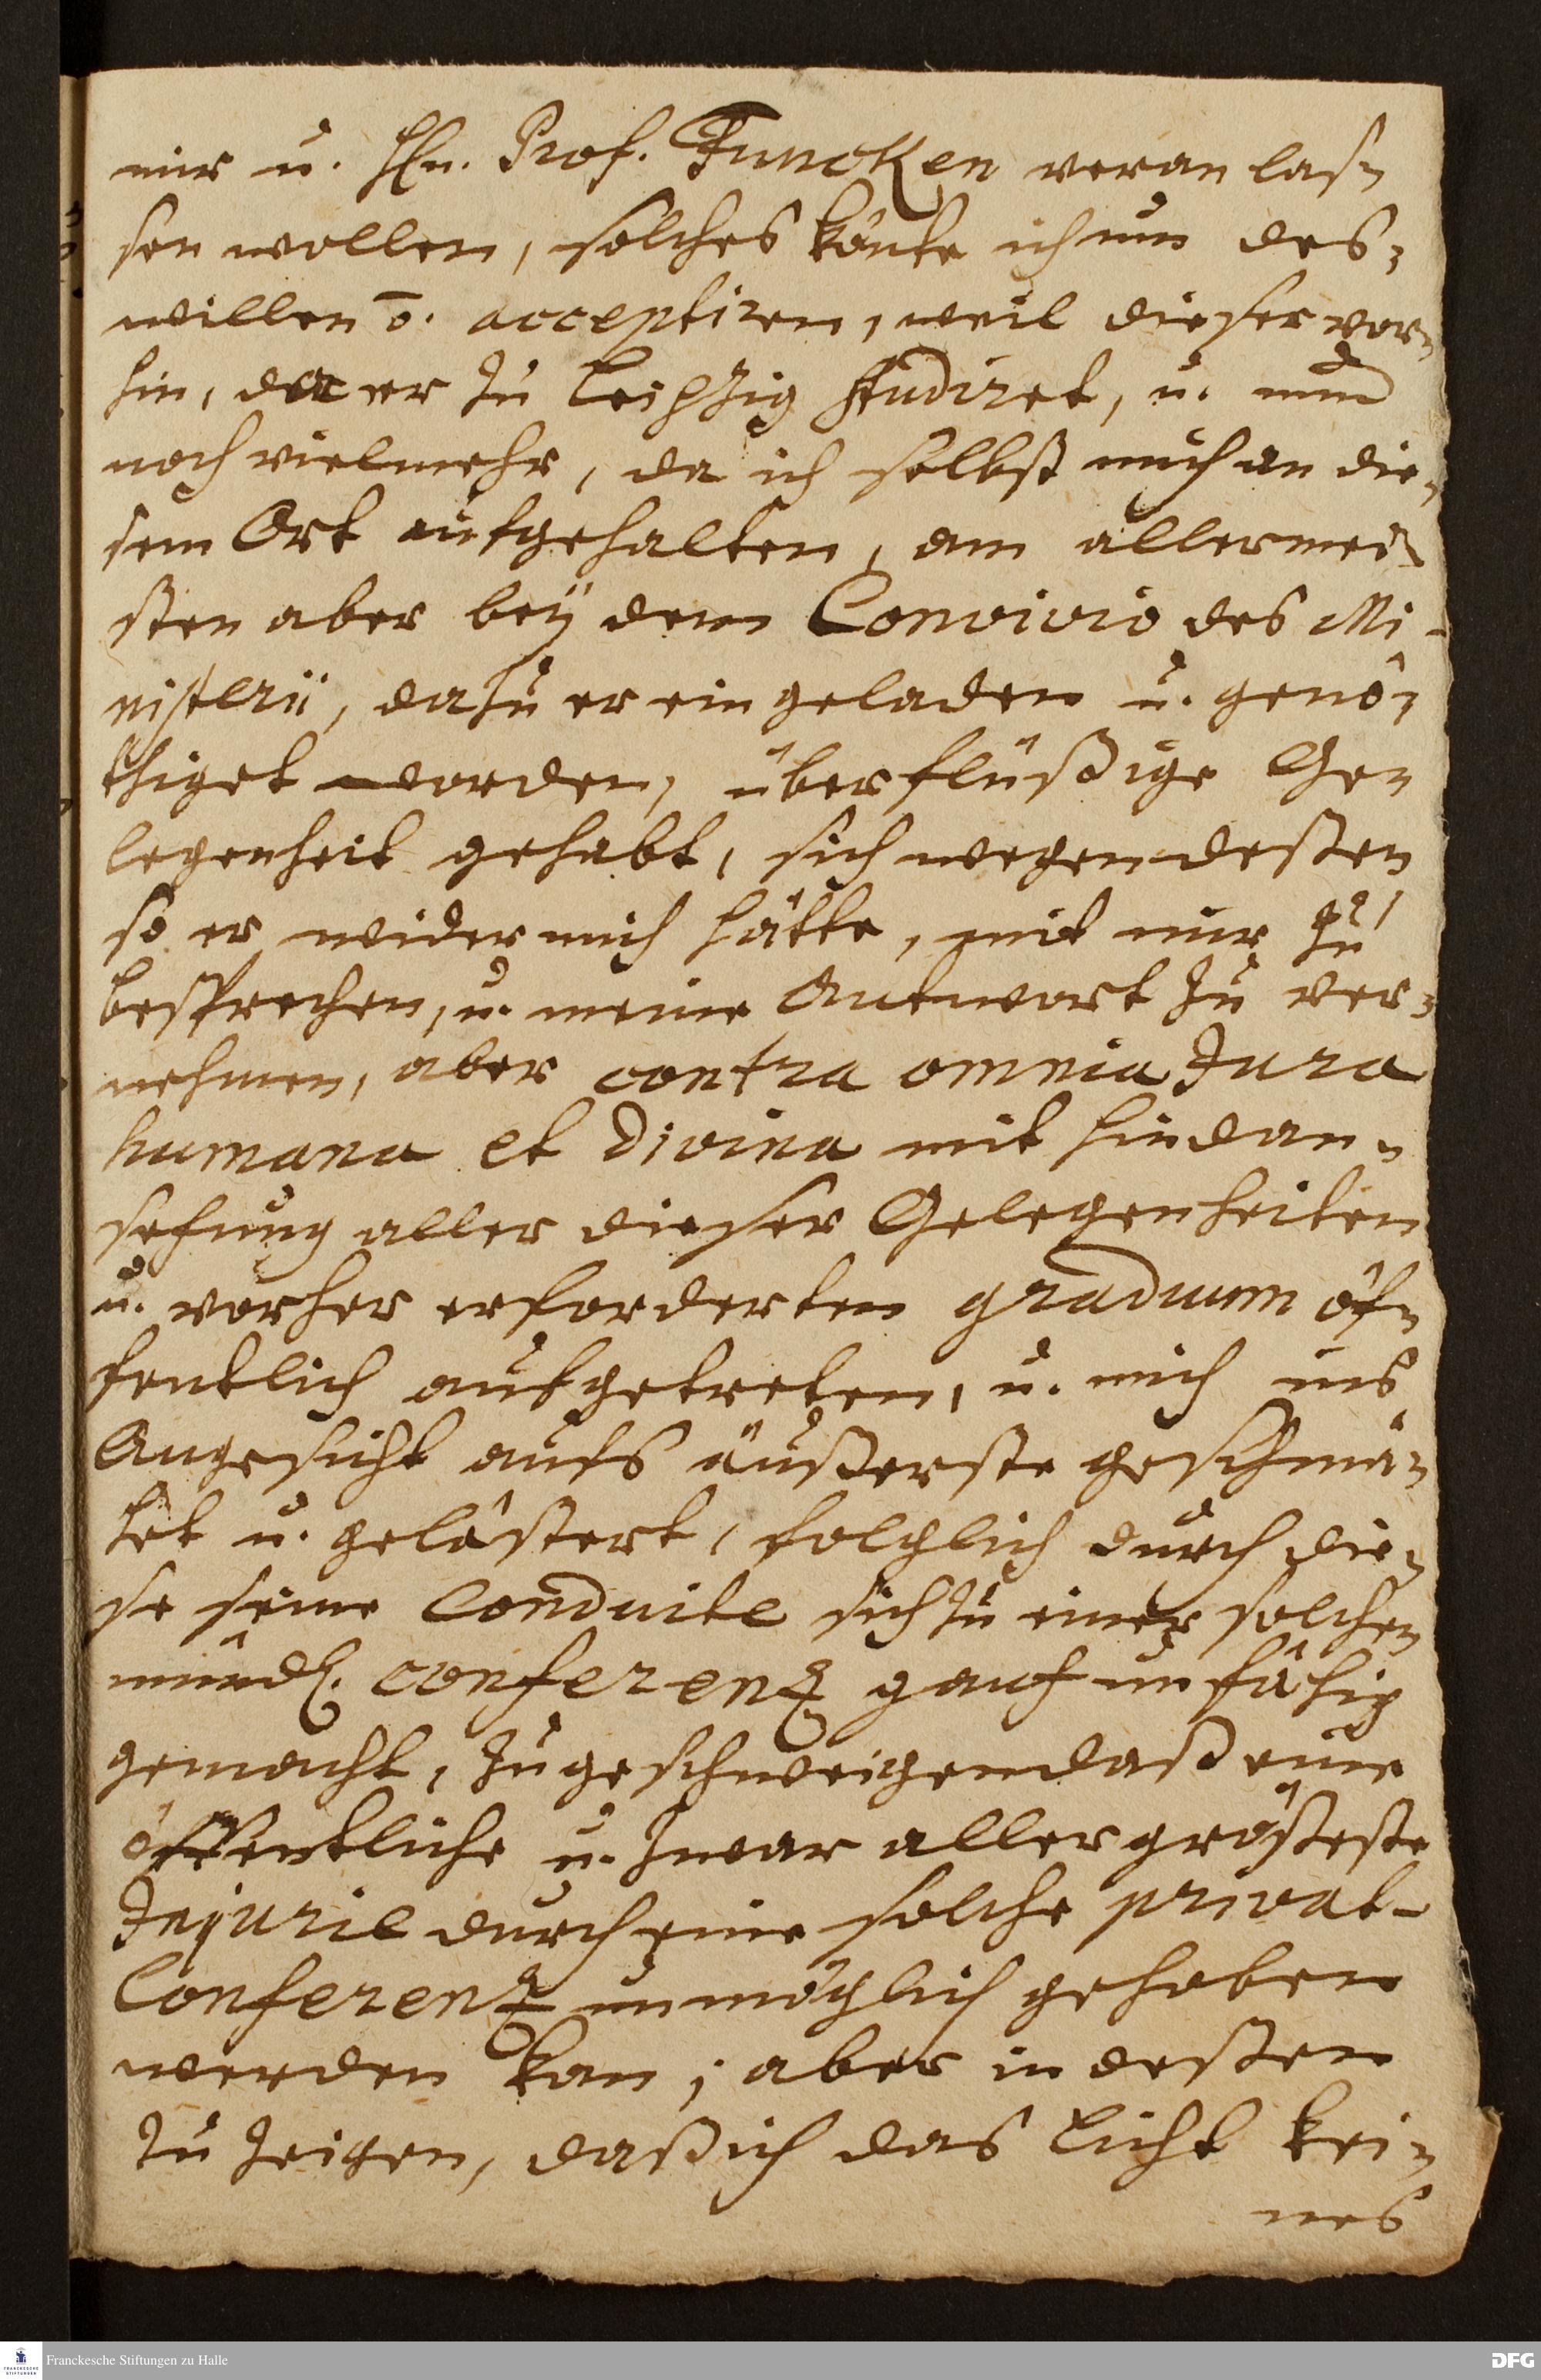 mir u. Hn. Prof. Funcken veranlas-
sen wollen, solches könte ich um des-
willen õ. acceptiren, weil dieser vor-
hin, da er zu Leipzig studiret, u. nun
noch vielmehr, da ich selbst mich an die-
sem Ort aufgehalten, am allermei-
sten aber bey dem Convivio des Mi-
nisterii, dazu er eingeladen u. genö-
thiget worden, überflüßige Ge-
legenheit gehabt, sich wegen deßen
so er wider mich hätte, mit mir zu
besprechen, u. meine Antwort zu ver-
nehmen, aber contra omnia Jura
humana et divina mit hindan-
sezung aller dieser Gelegenheiten
u. vorher erforderten graduum öf-
fentlich aufgetreten, u. mich ins
Angesicht aufs äußerste geschmä-
het u. gelästert, folglich durch die-
se seine Conduite sich zu einer solchen
mündl. conferenz ganz unfähig
gemacht, zugeschweigen daß eine
öffentliche u. zwar allergrößeste
Injurie durch eine solche privat-
Conferenz unmöglich gehoben
werden kan; aber indeßen
zu zeigen, daß ich das Licht kei-
nes
Franckesche Stiftungen zu Halle
DFG